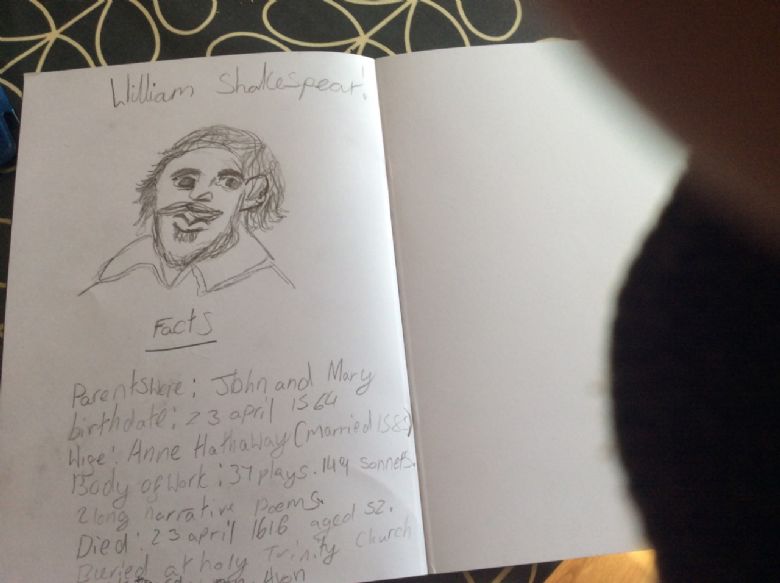 William Shakespear!
Facts
Parents were: John and Mary
birthdate: 23 april 1564
Wige: Anne Hathaway (married 158
Body of Work: 37 plays. 149 sonnets.
2 long narrative Poems.
Died: 23 april 1616 aged 52.
Buried at holy Trinity Church
Avon